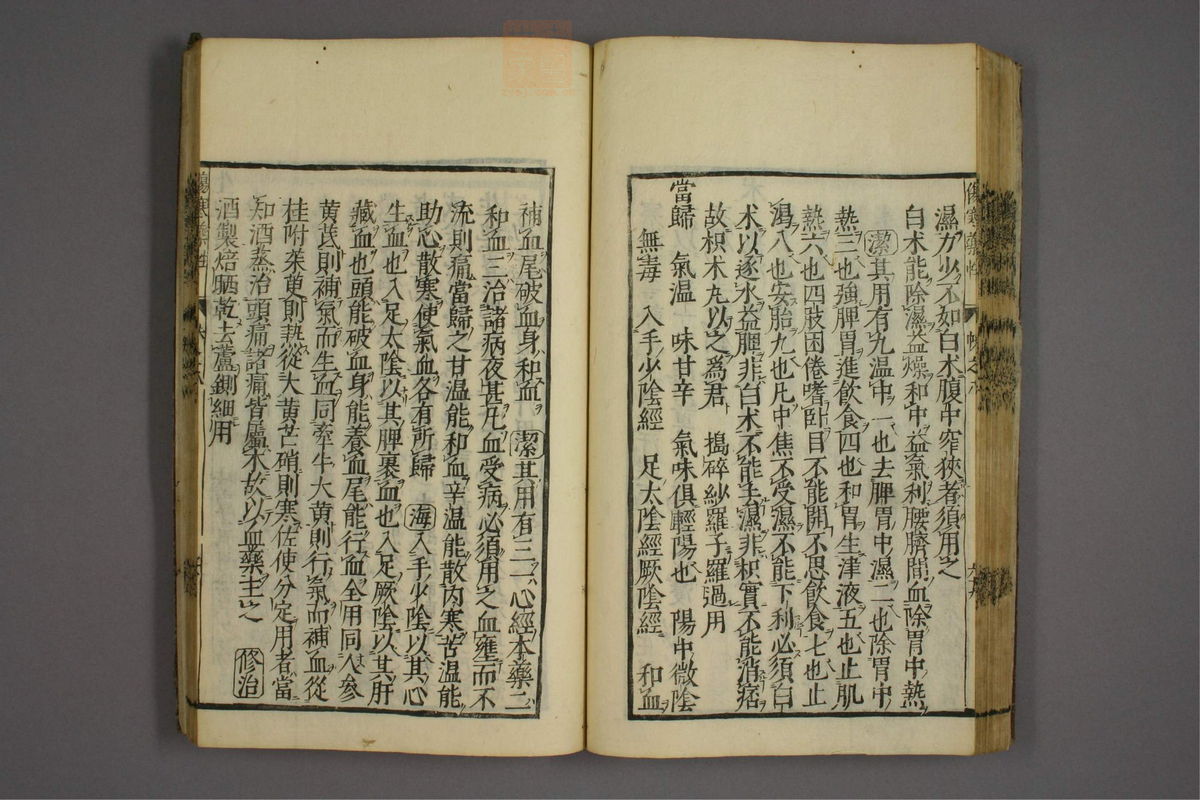 濕力少不如白术腹中窄狹者須用之
白术能除濕益燥和中益氣利腰臍間血除胃中熱
潔其用有九温中一也去脾胃中濕二也除胃中
熱三也強脾胃進飲食四也和胃生津液五也止肌
熱六也四肢困倦嗜卧目不能開不思飲食七也止
渴八也安胎九也凡中焦不受濕不能下利必須白
术以逐水益脾非白术不能去濕非枳實不能消痞
故枳术丸以之爲君 搗碎紗羅子羅過用
當歸 氣温 味甘辛 氣味俱輕陽也 陽中微陰
無毒 入手少陰經 足太陰經厥陰經 和血
補血尾破血身和血 潔其用有三一心經本藥二
和血三治諸病夜甚凡血受病必須用之血壅而不
流則痛當歸之甘温能和血辛温能散内寒苦温能
助心散寒使氣血各有所歸 海入手少陰以其心
生血也入足太陰以其脾裹血也入足厥陰以其肝
藏血也頭能破血身能養血尾能行血全用同人參
黄芪則補氣而生血同牽牛大黄則行氣而補血從
桂附茱萸則熱從大黄芒硝則寒佐使分定用者當
知酒蒸治頭痛諸痛皆屬木故以血藥主之 修治
酒製焙晒乾去蘆剉細用